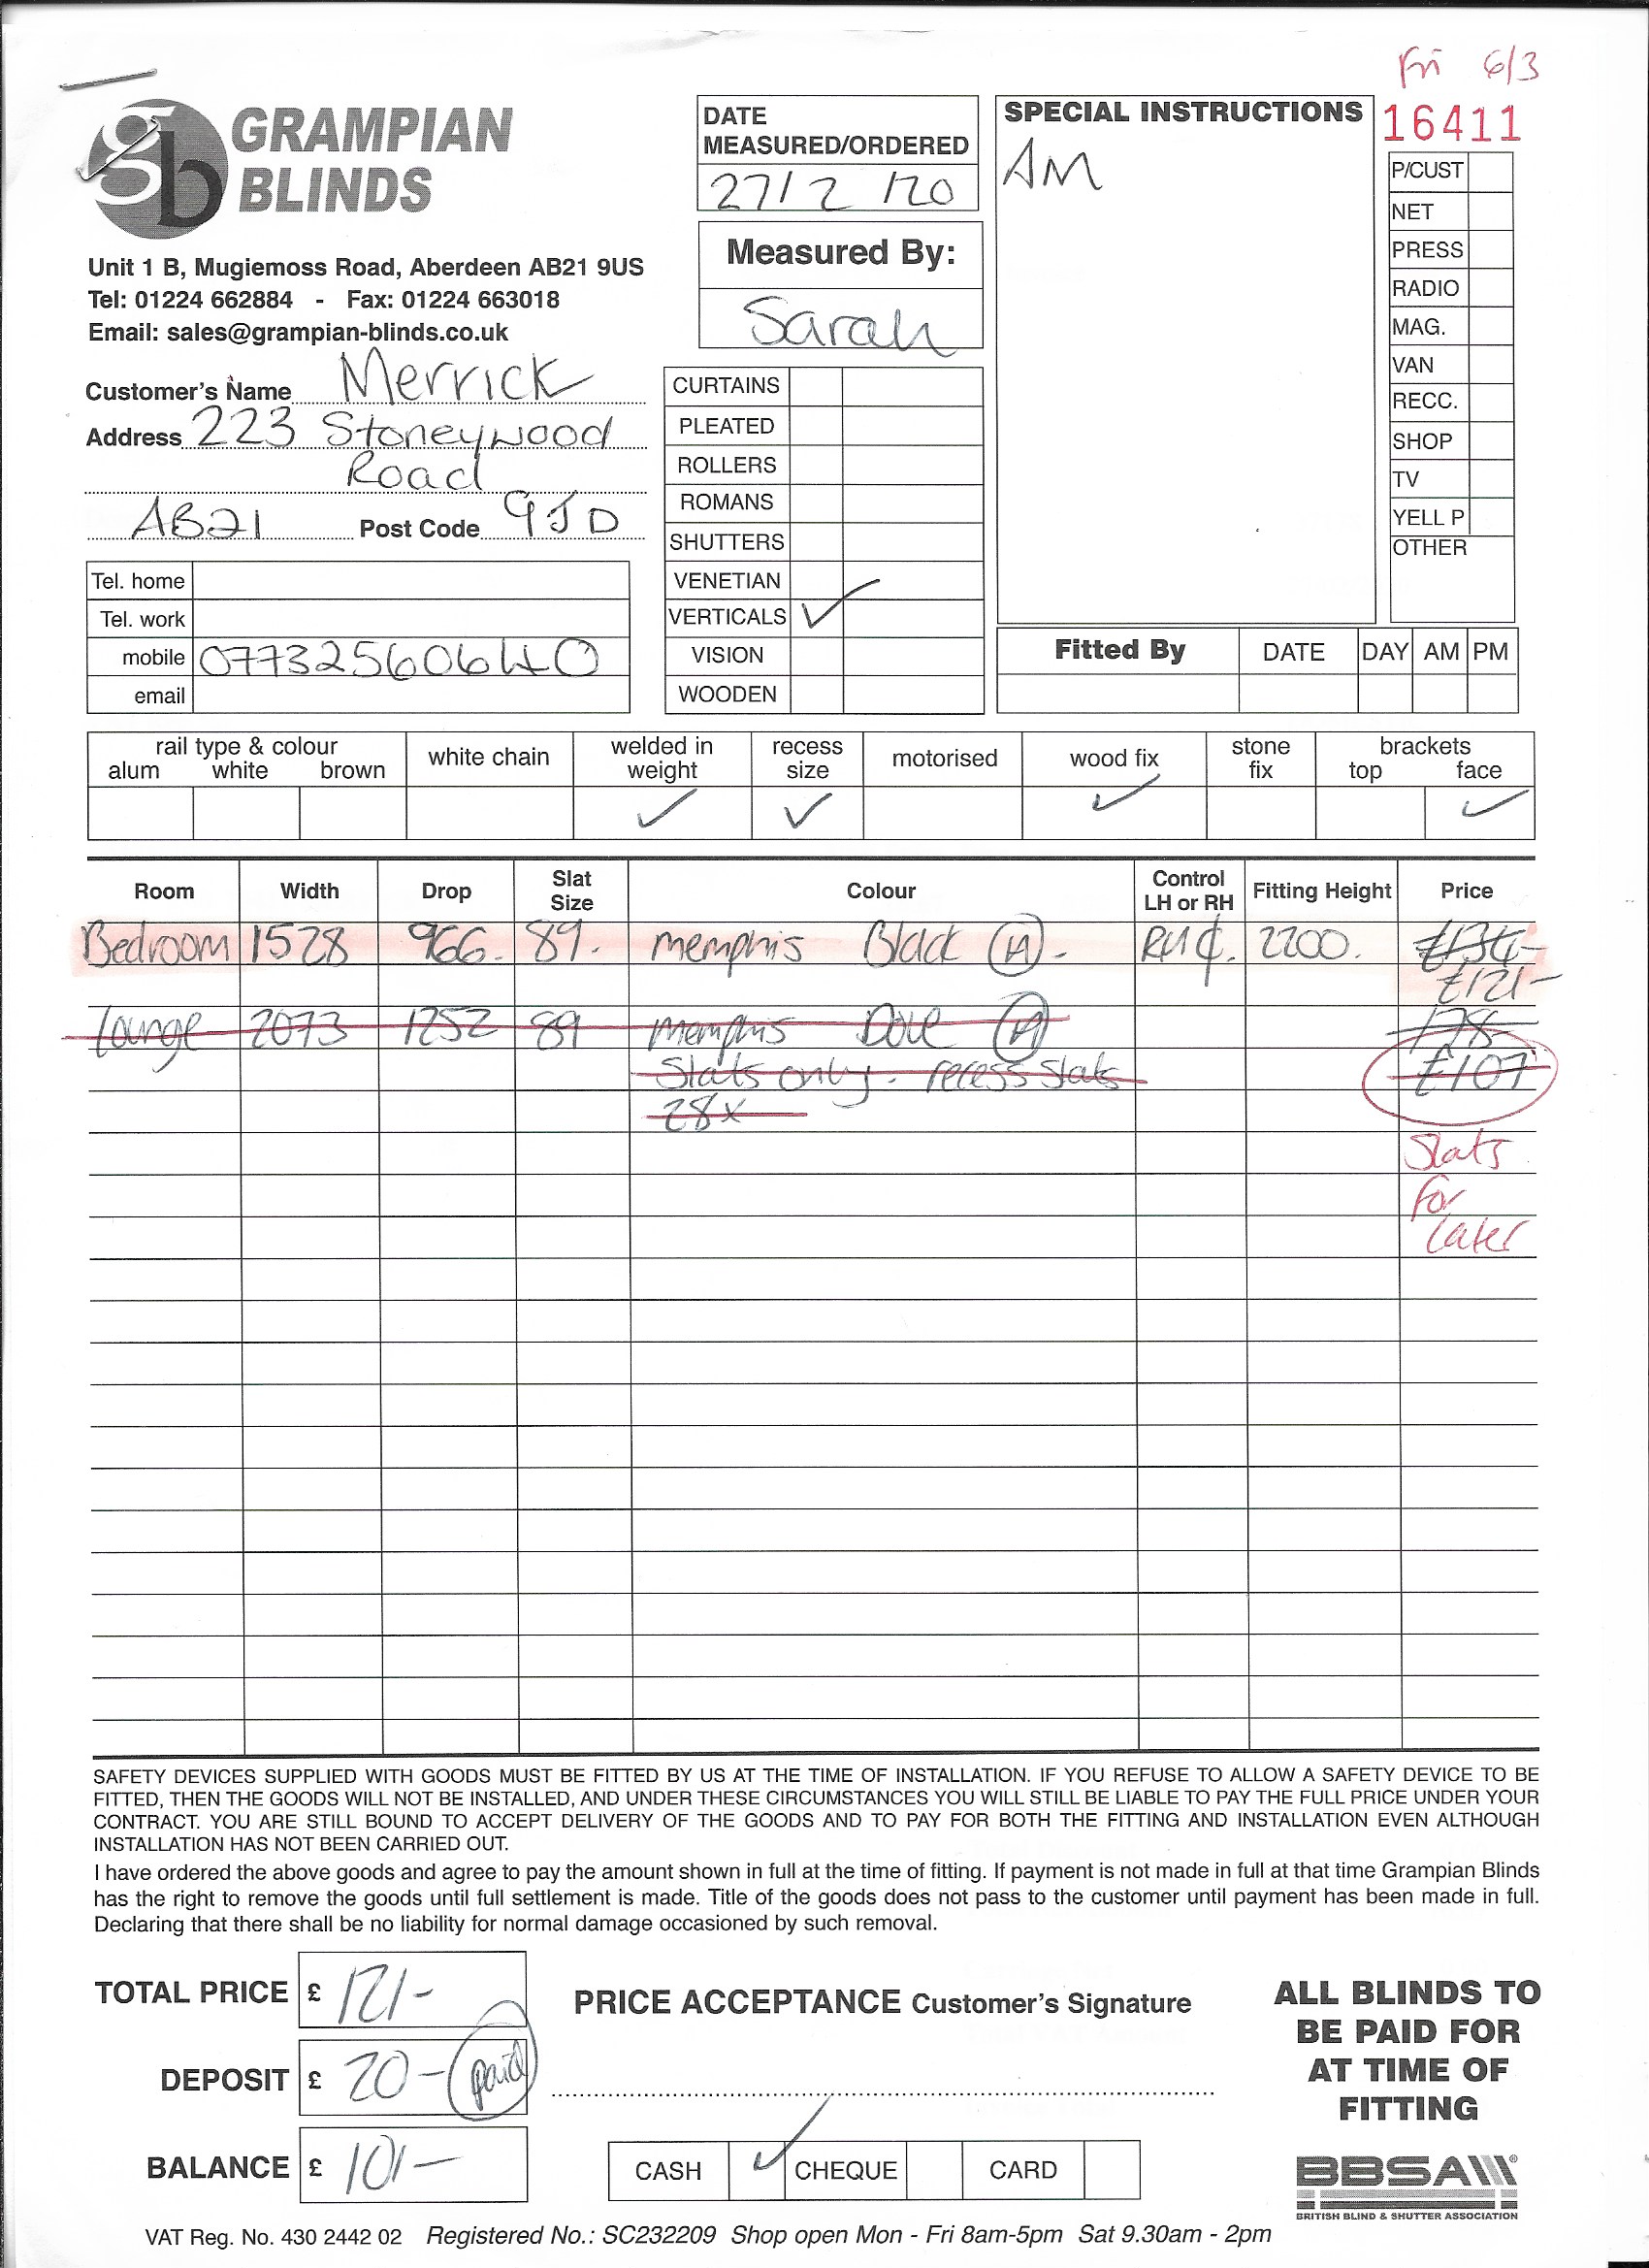 Fri 6/3
GRAMPIAN
BLINDS
gb
Unit 1 B, Mugiemoss Road, Aberdeen AB21 9US
Tel: 01224 662884 - Fax: 01224 663018
Email: sales@grampian-blinds.co.uk
Customer's Name Merrick
Address 223 Stoneywood
Road
AB21 Post Code 9JD
Tel. home
Tel. work
mobile 07732560640
email
DATE
MEASURED/ORDERED
27/2/20
Measured By:
Sarah
CURTAINS
PLEATED
ROLLERS
ROMANS
SHUTTERS
VENETIAN
VERTICALS ✓
VISION
WOODEN
SPECIAL INSTRUCTIONS
AM
16411
P/CUST
NET
PRESS
RADIO
MAG.
VAN
RECC.
SHOP
TV
YELL P
OTHER
Fitted By DATE DAY AM PM
rail type & colour white chain welded in weight recess size motorised wood fix stone fix brackets
alum white brown top face
✓ ✓ ✓ ✓
Room Width Drop Slat Size Colour Control LH or RH Fitting Height Price
Bedroom 1528 966. 89. Memphis Black (A). 2200. £134-
£121-
Lounge 2073 1252 89 Memphis Dove (A) 178-
Slats only. recess slats £107
28x
Slats
for
later
SAFETY DEVICES SUPPLIED WITH GOODS MUST BE FITTED BY US AT THE TIME OF INSTALLATION. IF YOU REFUSE TO ALLOW A SAFETY DEVICE TO BE
FITTED, THEN THE GOODS WILL NOT BE INSTALLED, AND UNDER THESE CIRCUMSTANCES YOU WILL STILL BE LIABLE TO PAY THE FULL PRICE UNDER YOUR
CONTRACT. YOU ARE STILL BOUND TO ACCEPT DELIVERY OF THE GOODS AND TO PAY FOR BOTH THE FITTING AND INSTALLATION EVEN ALTHOUGH
INSTALLATION HAS NOT BEEN CARRIED OUT.
I have ordered the above goods and agree to pay the amount shown in full at the time of fitting. If payment is not made in full at that time Grampian Blinds
has the right to remove the goods until full settlement is made. Title of the goods does not pass to the customer until payment has been made in full.
Declaring that there shall be no liability for normal damage occasioned by such removal.
TOTAL PRICE £ 121-
DEPOSIT £ 20- (paid)
BALANCE £ 101-
PRICE ACCEPTANCE Customer's Signature
CASH ✓ CHEQUE CARD
ALL BLINDS TO
BE PAID FOR
AT TIME OF
FITTING
BBSA
BRITISH BLIND & SHUTTER ASSOCIATION
VAT Reg. No. 430 2442 02 Registered No.: SC232209 Shop open Mon - Fri 8am-5pm Sat 9.30am - 2pm